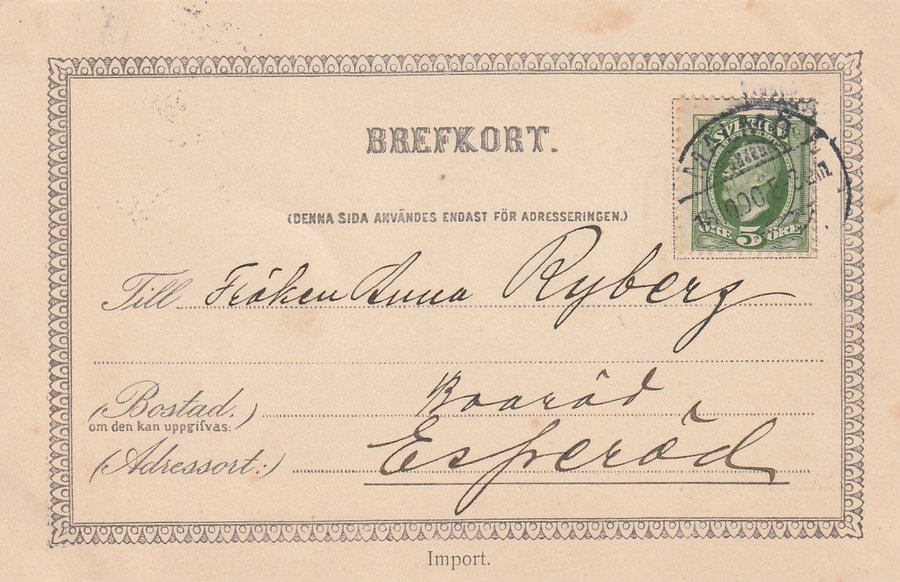 BREFKORT.
SVERIGE
5
ÖRE ÖRE
(DENNA SIDA ANVÄNDES ENDAST FÖR ADRESSERINGEN.)
Till Fröken Anna Ryberg
(Bostad.)
om den kan uppgifvas:
(Adressort:) Esperöd
Import.